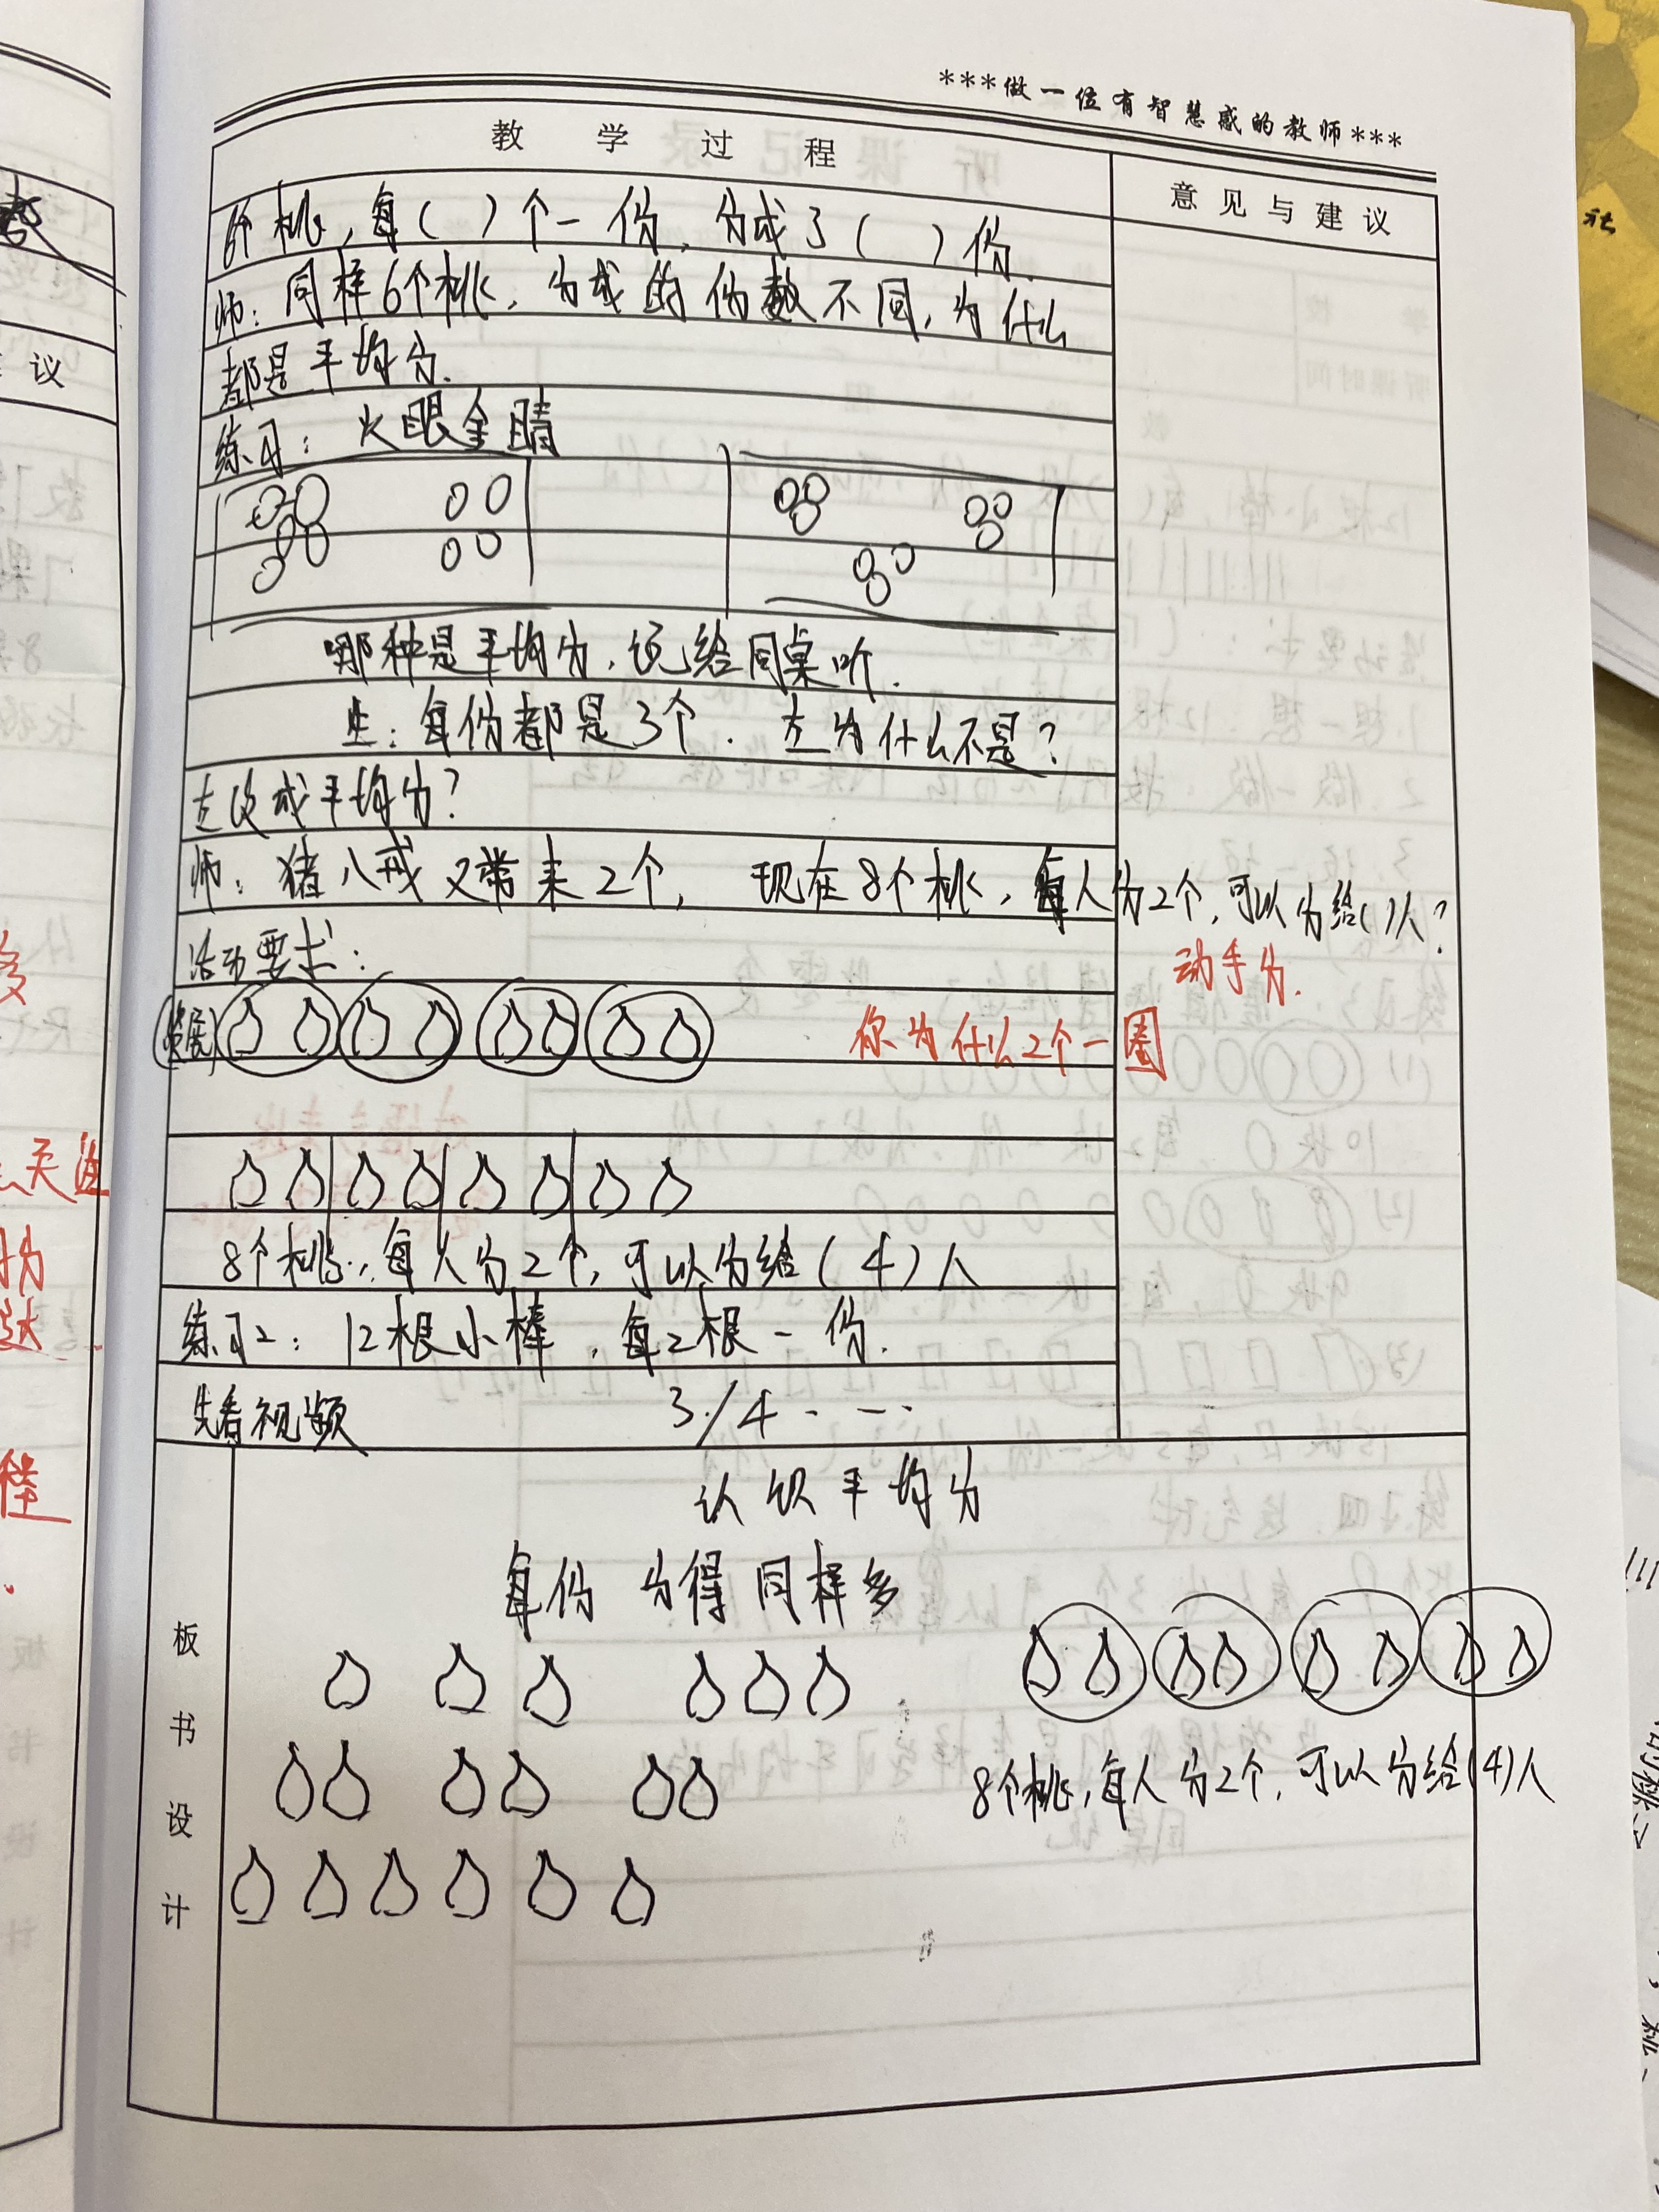 ***做一位有智慧感的教师***
教学过程
意见与建议
6个桃，每（ ）个一份，分成了（ ）份.
师：同样6个桃，分成的份数不同，为什么
都是平均分.
练习：火眼金睛
哪种是平均分，说给同桌听.
生：每份都是3个. 左为什么不是？
左改成平均分？
师：猪八戒又带来2个，现在8个桃，每人分2个，可以分给( )人？
活动要求：
动手分.
展
你为什么2个一圈
8个桃，每人分2个，可以分给（4）人
练习2：12根小棒，每2根一份.
先看视频 3/4
板书设计
认识平均分
每份 分得同样多
8个桃，每人分2个，可以分给(4)人
议